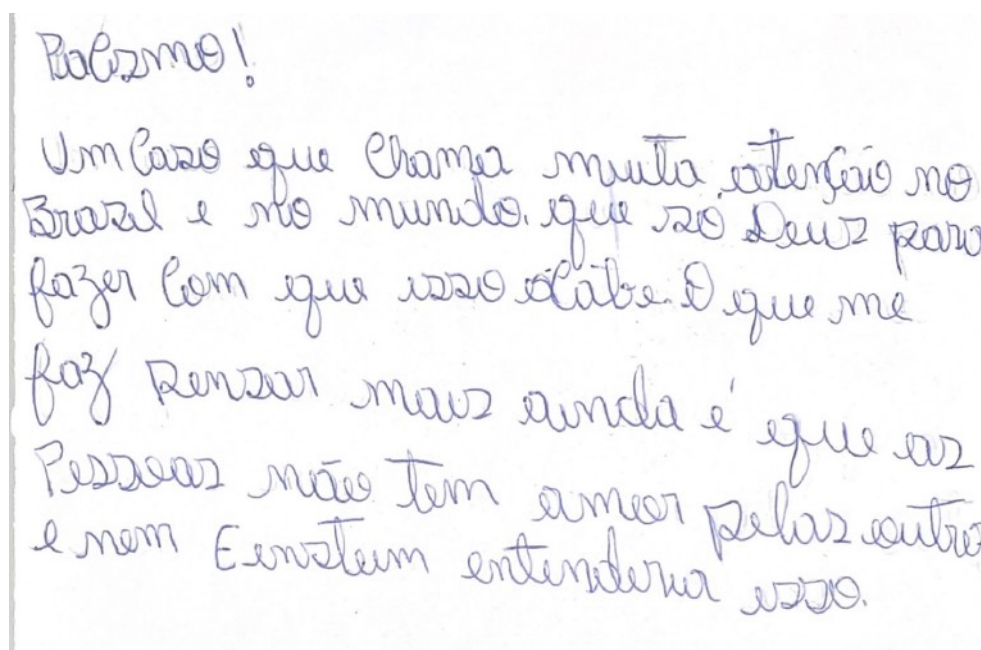 Racismo!
Um Caso que Chama muita atenção no
Brasil e no mundo. que só Deus para
fazer Com que isso acabe. O que me
faz pensar mais ainda é que as
Pessoas não tem amor pelas outras
e nem Einstein entenderia isso.